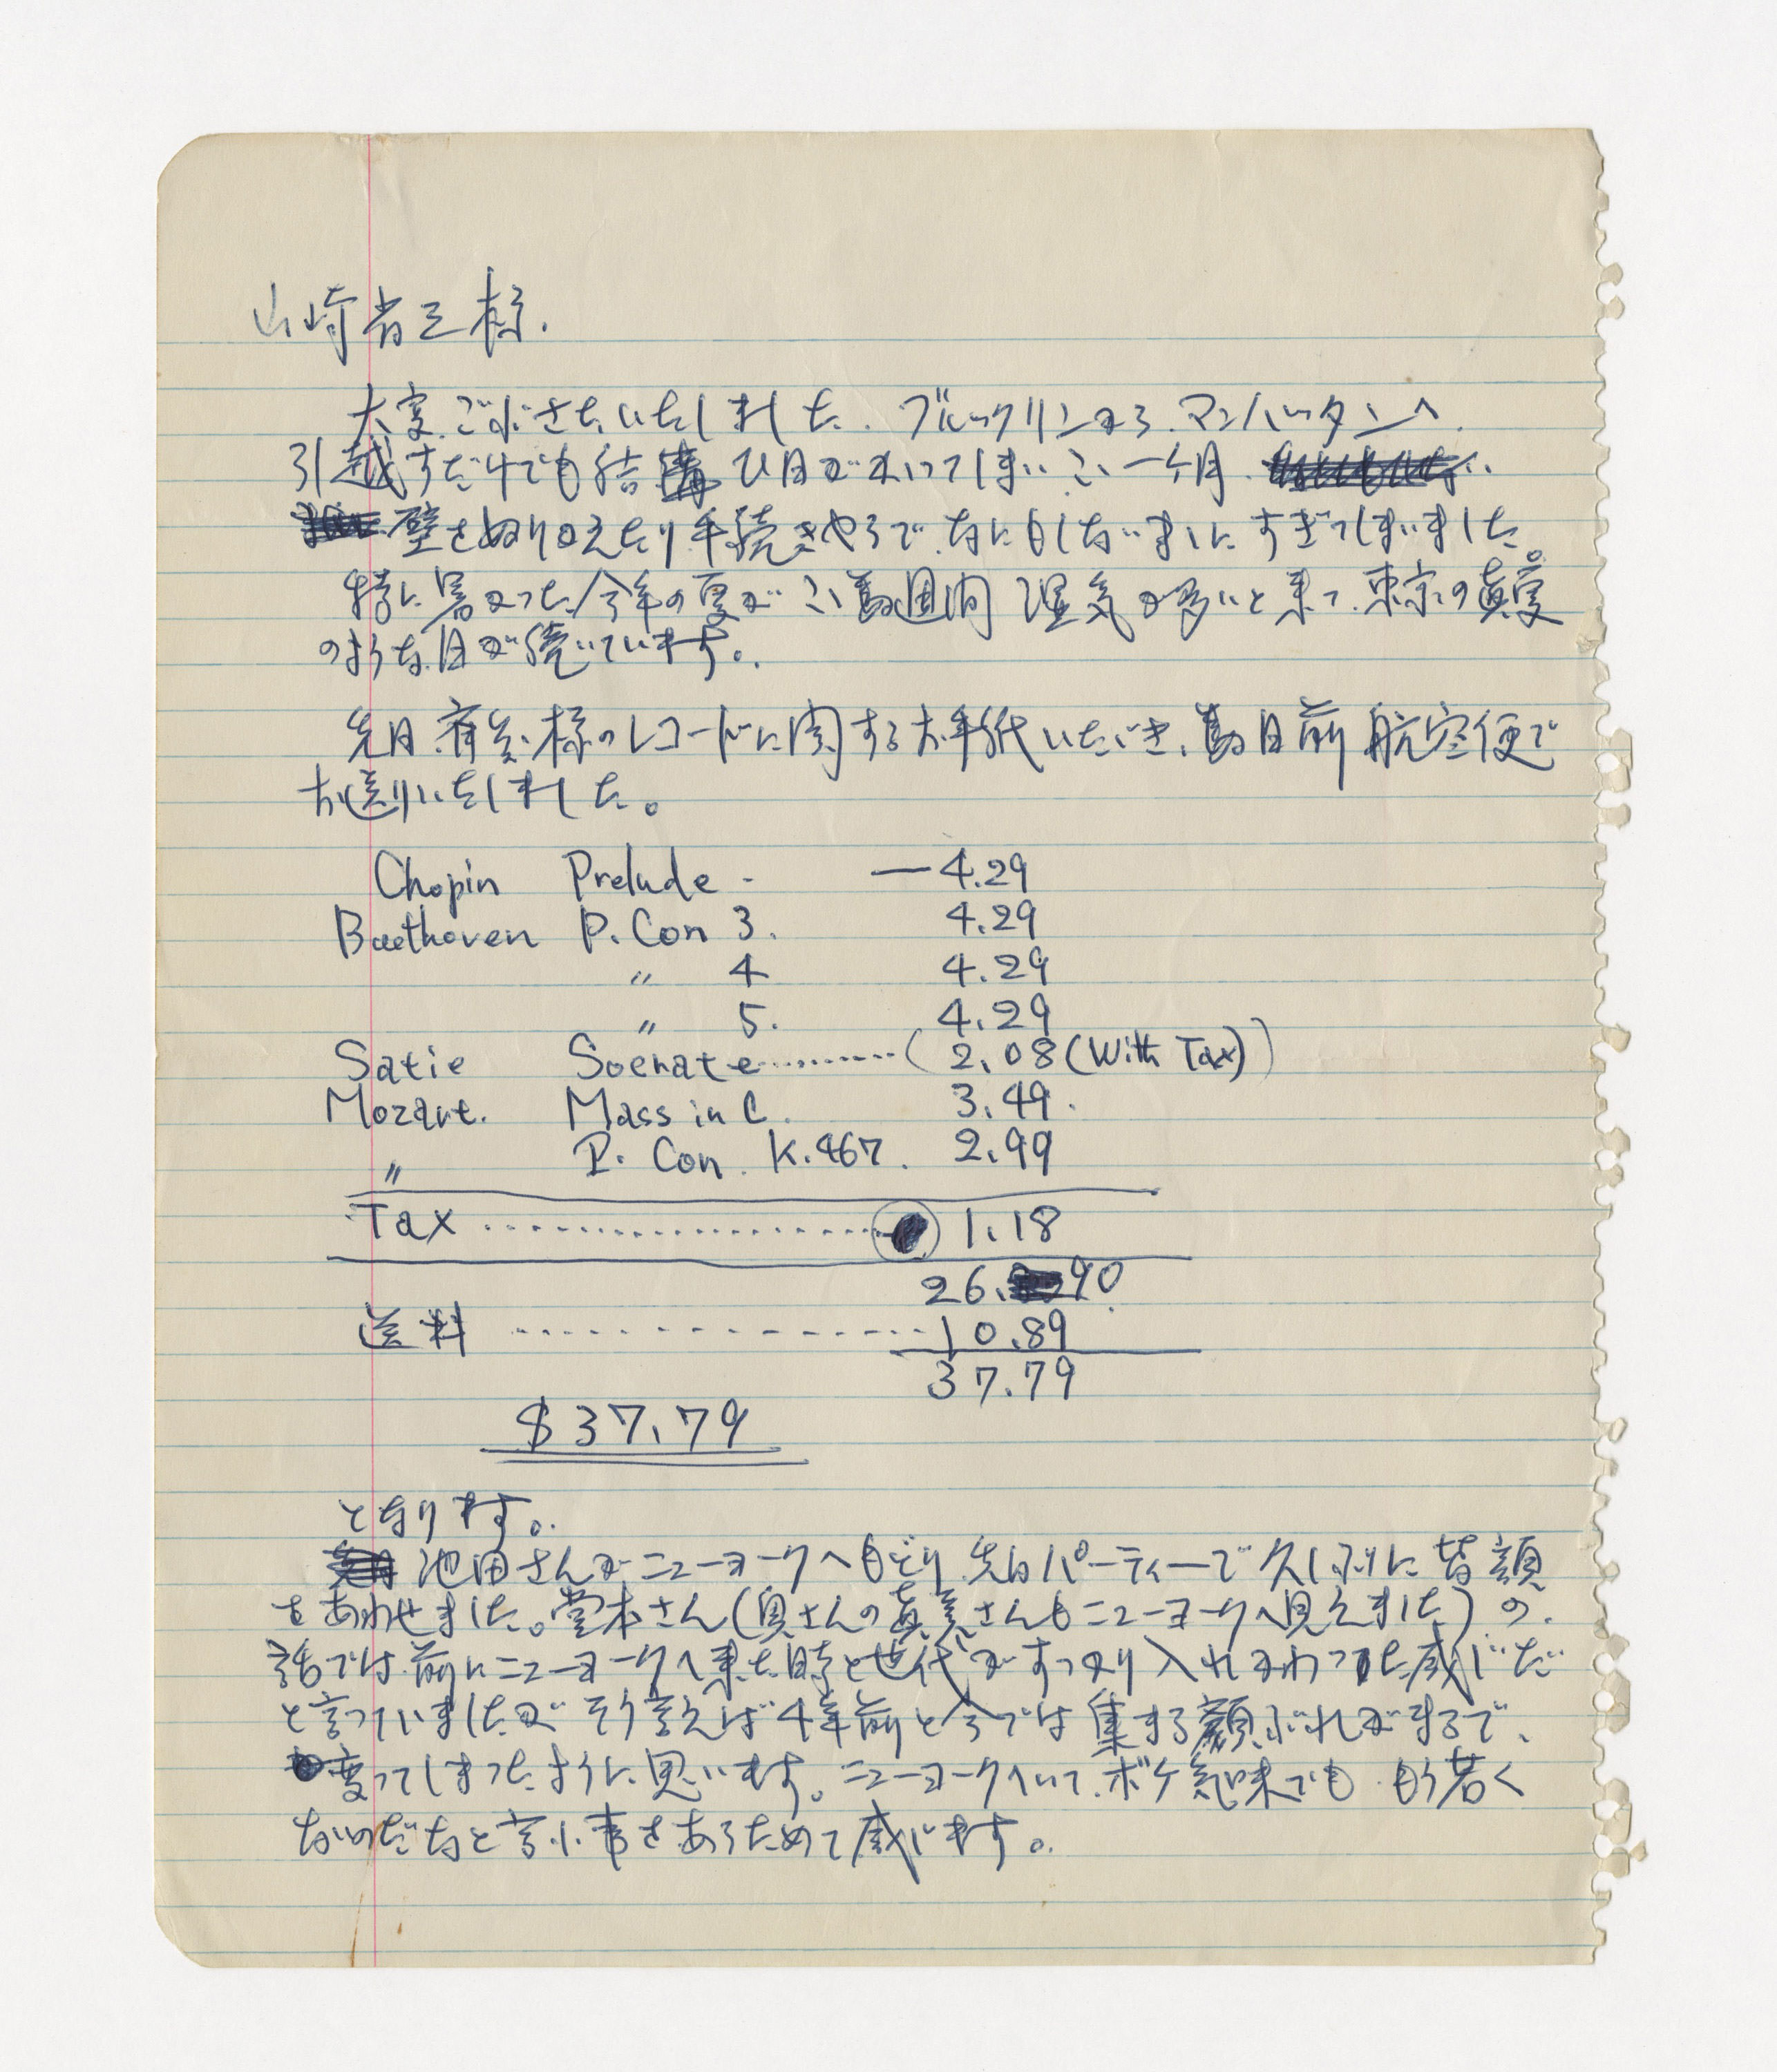 山崎省三様.
大変ごぶさたいたしました. ブルックリンから マンハッタンへ
引越すだけでも結構ひ日がかかってしまいこゝ一ケ月
壁をぬりかえたり手続きやらで なにもしないまゝにすぎてしまいました。
特に暑かった今年の夏がこゝ数週間湿気が多いと来て 東京の真夏
のような日が続いています。
先日 様のレコードに関するお手紙いただき、数日前航空便で
お送りいたしました。
Chopin Prelude - —4.29
Beethoven P. Con 3. 4.29
〃 4 4.29
〃 5. 4.29
Satie Socrate..........( 2.08 (With Tax))
Mozart. Mass in C. 3.49.
〃 P. Con. K.467. 2.99
Tax ................... 1.18
26.90
送料 ............ 10.89
37.79
$37.79
となります。
池田さんがニューヨークへもどり 先日パーティーで久しぶりに皆顔
をあわせました。堂本さん(奥さんの真美さんもニューヨークへ見えました)の
話では前にニューヨークへ来た時と世代がすっかり入れかわった感じだ
と言っていましたが そう言えば4年前と今では集まる顔ぶれがまるで、
変ってしまったように思います。ニューヨークへいて、ボケ気味でも もう若く
ないのだなと言う事をあらためて感じます。